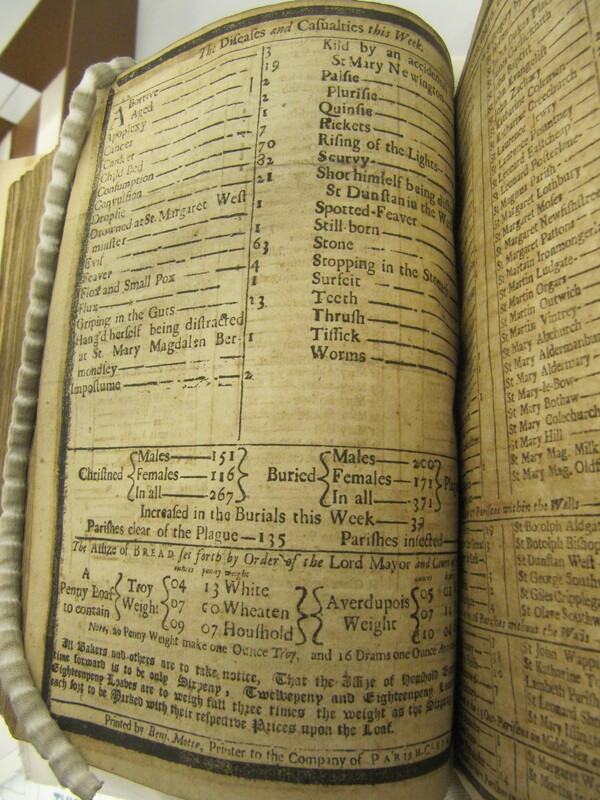 The Diseases and Casualties this Week.
Abortive 3
Aged 19
Apoplexy 2
Cancer 2
Canker 1
Child Bed 7
Consumption 70
Convulsion 82
Dropsie 21
Drowned at St. Margaret West
minster 1
Evil 1
Feaver 63
Flox and Small Pox 4
Flux 1
Griping in the Guts 23
Hang'd herself being distracted
at St. Mary Magdalen Ber-
mondsey 1
Impostume 2
Kild by an accident
St Mary Newington
Palsie
Plurisie
Quinsie
Rickets
Rising of the Lights
Scurvy
Shot himself being
St Dunstan in the
Spotted-Feaver
Still-born
Stone
Stopping in the
Surfeit
Teeth
Thrush
Tissick
Worms
Christned
Males—151
Females—116
In all—267
Buried
Males—200
Females—171
In all—371
Increased in the Burials this Week—
Parishes clear of the Plague—135 Parishes infected—
The Assize of BREAD set forth by Order of the Lord Mayor and Court of
ounces penny weight
A
Penny Loaf
to contain
Troy
Weight
04 13 White
07 00 Wheaten
09 07 Houshold
Averdupois
Weight
05
07
10
Note, 20 Penny Weight make one Ounce Troy, and 16 Drams one Ounce
All Bakers and others are to take notice, That the Assize of Houshold
time forward is to be only Sixpeny, Twelvepeny and Eighteenpeny
Eighteenpeny Loaves are to weigh full three times the weight as the Sixpeny
each sort to be Marked with their respective Prices upon the Loaf.
Printed by Benj. Motte, Printer to the Company of PARISH-CLERKS
St Margaret Lothbury
St Margaret Moses
St Margaret Newfishstreet
St Margaret Pattons
St Martin Ironmonger
St Martin Ludgate
St Martin Orgars
St Martin Outwich
St Martin Vintrey
St Mary Abchurch
St Mary Aldermanbury
St Mary Aldermary
St Mary-le-Bow
St Mary Bothaw
St Mary Colechurch
St Mary Hill
St Mary Mag. Milk
St Mary Mag. Oldf
Parishes within the Walls
St Botolph Aldga
St Botolph Bishop
St Dunstan West
St George Southw
St Giles Cripplega
St Olave Southw
Parishes without the Walls
St John Wappi
St Katharine To
Lambeth Parish
St Leonard Sho
St Mary Islin
St Margaret W
St Martin